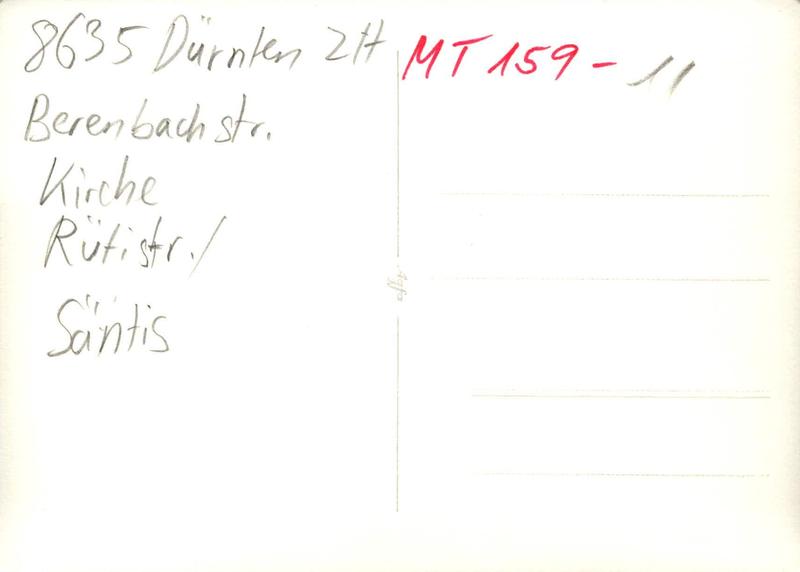 8635 Dürnten ZH
Berenbachstr.
Kirche
Rütistr./
Säntis
MT 159 - 11
agfa